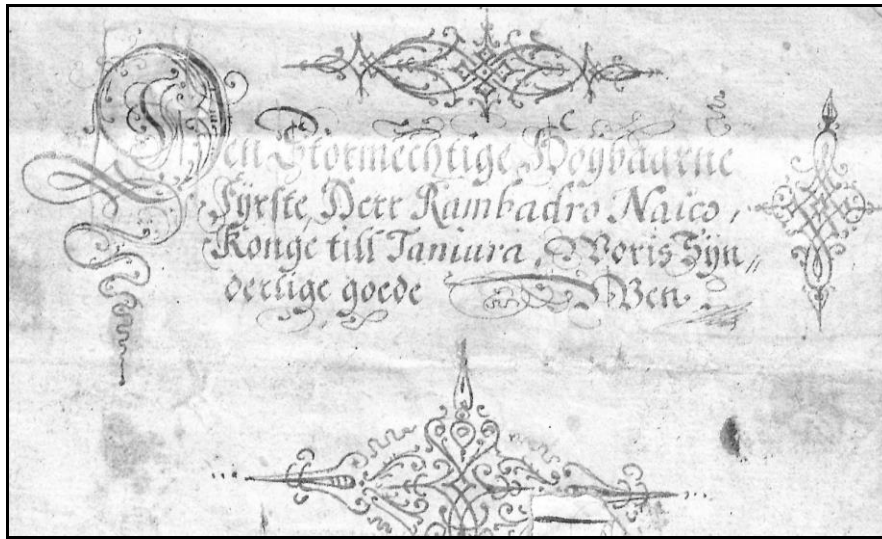 Den Stormechtige Høybaarne
Fyrste, Herr Rambadro Naico,
Konge till Taniura, Woris Syn„
derlige goede Wen.